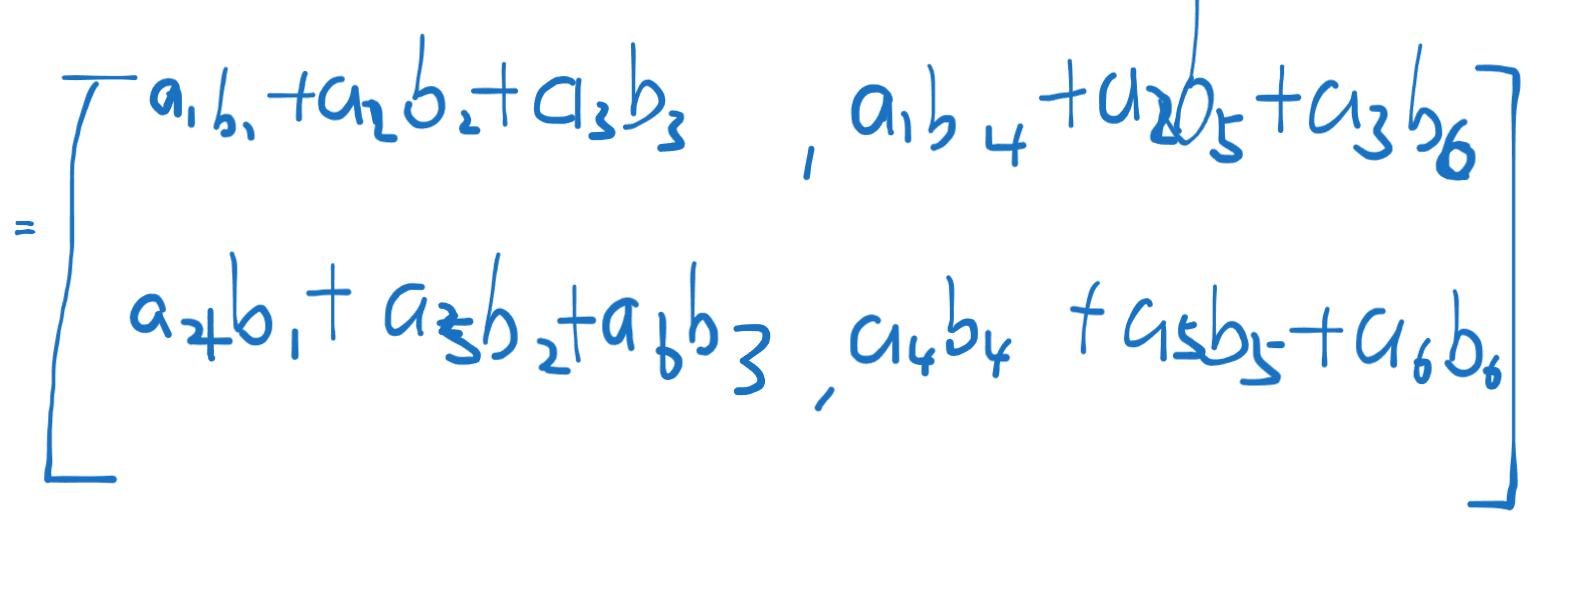 = [ a₁b₁ + a₂b₂ + a₃b₃ , a₁b₄ + a₂b₅ + a₃b₆
a₄b₁ + a₅b₂ + a₆b₃ , a₄b₄ + a₅b₅ + a₆b₆ ]